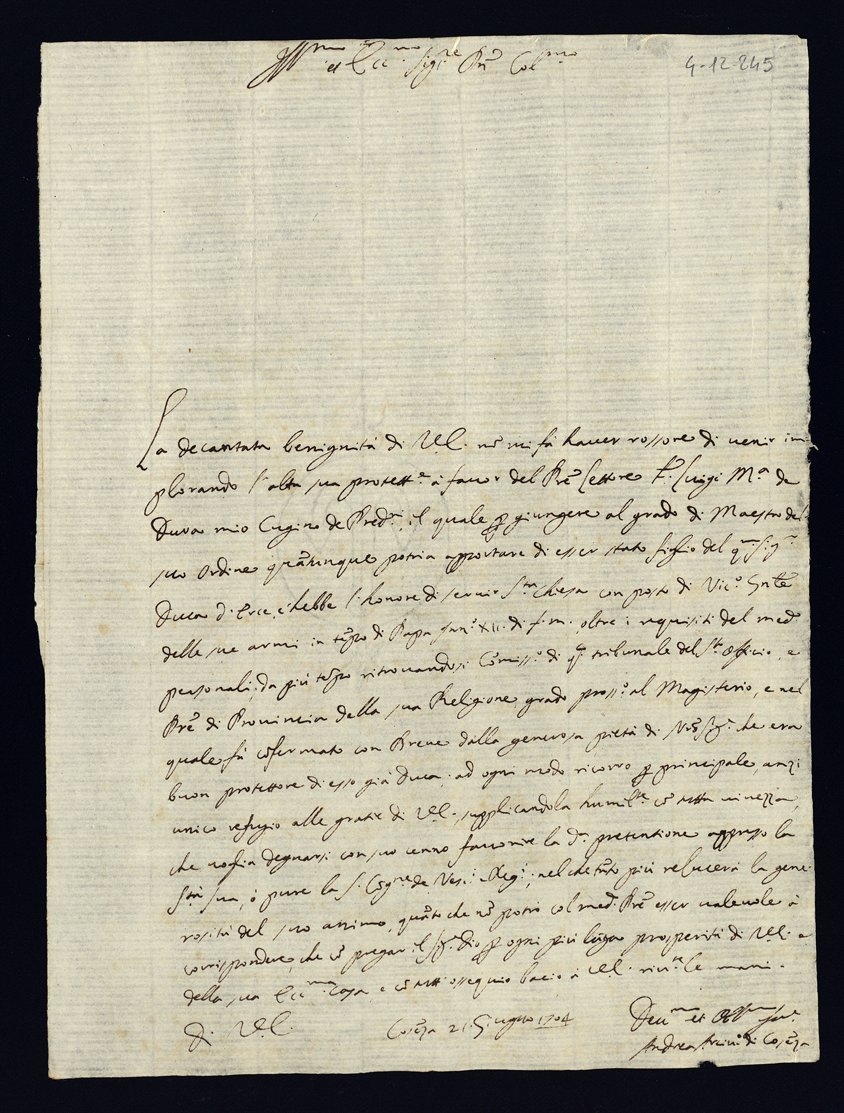 Ill.mo et Ecc.mo Sig.re P̃ne Col.mo
4-12-245
La decantata benignità di V.E. nõ mi fà haver rossore di venir im
plorando l'alta sua protett.e à favor del Pr̃e Lettore F. Luigi M.a de
Dura mio Cugino de Pred.ri, il quale p̱ giungere al grado di Maestro del
suo ordine quãtunque potria apportare di esser stato figlio del q.m Sig.r
Duca d'Erce, c'hebbe l'honore di servir S.ta Chiesa con posto di Vic.o Gñle
delle sue armi in tẽpo di Papa Inn.o XII. di f. m. oltre i requisiti del med.
personali, da più tẽpo ritrovandosi Cõmiss.o di q.o tribunale del S.to Officio, e
Pr̃e di Provincia della sua Religione grado pross.o al Magisterio, e nel
quale fù cõfermato con Breve dalla generosa pietà di N̄rõ Sig.r che era
buon protettore di esso già Duca; ad ogni modo ricorro p̱ principale, anzi
unico refugio alle gratie di V.E., supplicandola humil.te cõ tutta vivezza,
che voglia degnarsi con suo cenno favorire la d.a pretentione appresso la
S.tà sua, ò pure la S. Cõg.ne de Vesc.i e Reg.i, nel che tãto più relucerà la gene
rosità del suo animo, quãto che nõ potrò col med. Pr̃e esser valevole à
corrispondere, che cõ pregar il Sig.r Dio p̱ ogni più lũga prosperità di V.E. e
della sua Ecc.ma Casa, e cõ tutt'ossequio bacio à V.E. riv.te le mani.
Di V.E. Cosẽza 21. Giugno 1704
Dev.mo et Obl.mo Ser.e
Andrea Arciv.o di Cosẽza